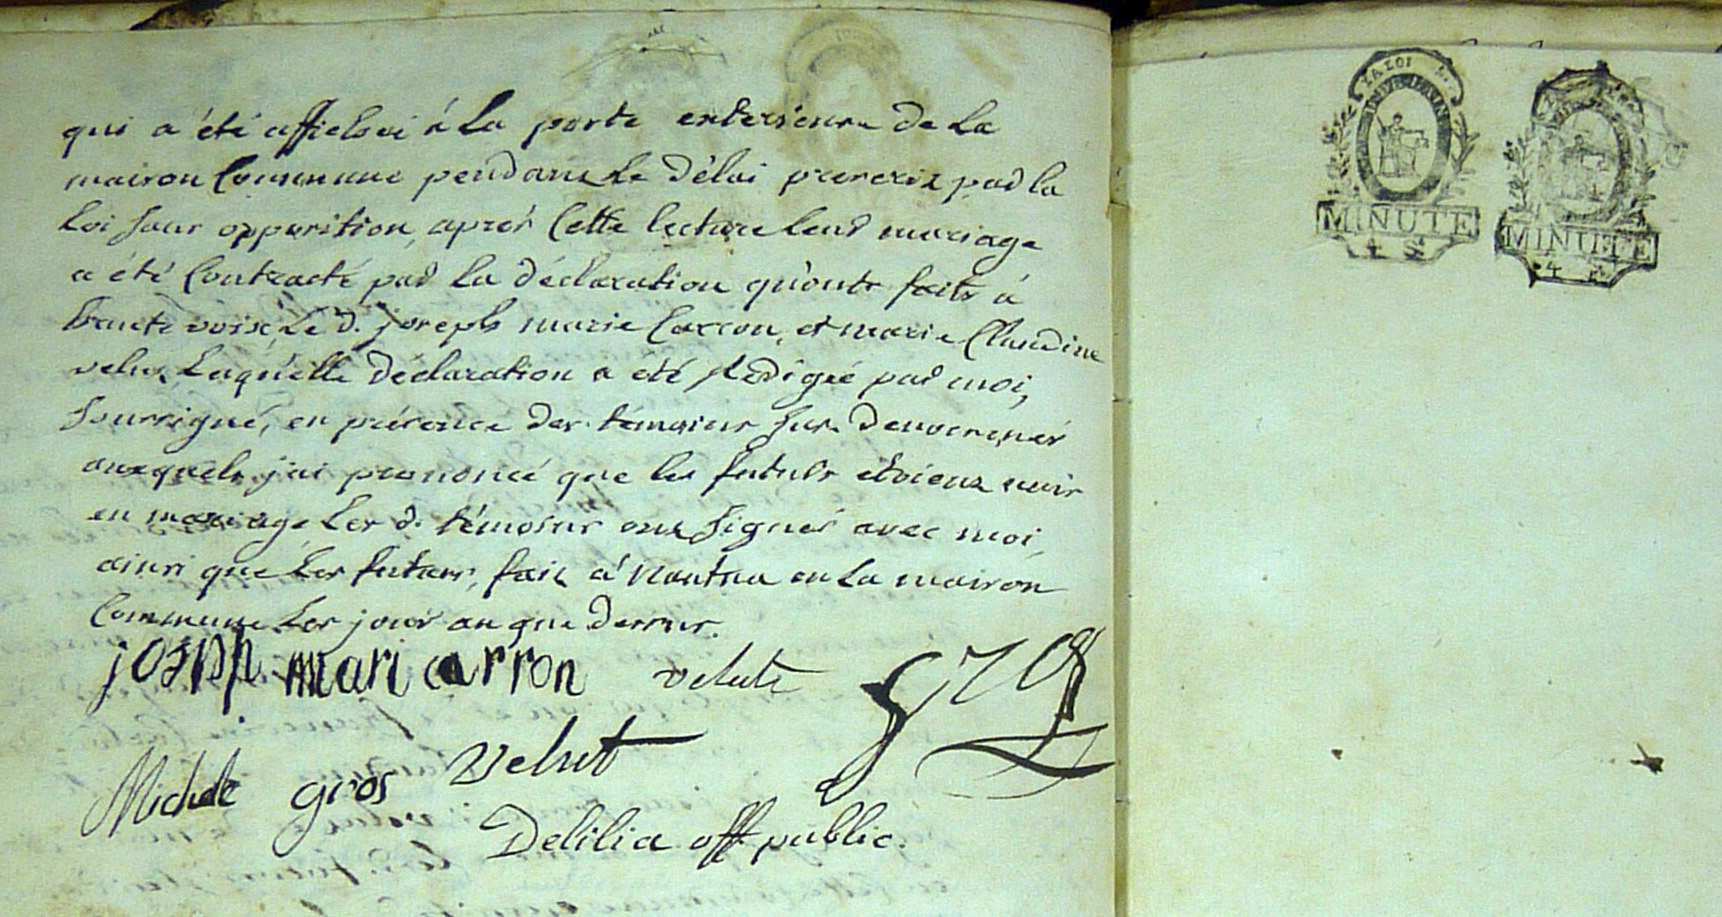 qui a été affiché à la porte exterieure de la
maison Commune pendant le délai prescrit par la
Loi sans opposition, après Cette lecture leur mariage
a été Contracté par la déclaration qu'ont faits à
haute voix, Le d. joseph marie Carron, et marie Claudine
velut, Laquelle déclaration a été Rédigée par moi,
Soussigné, en présence des témoins sus. denommés
auxquels j'ai prononcé que les futurs étoient unis
en mariage Les d. témoins ont Signés avec moi,
ainsi que Les futurs, fait à Nantua en La maison
Commune Les jour an que dessus.
josph mari carron velute
Michele gros Velut
Delilia off. public.
LA LOI
MINUTE
4 S
MINUTE
4